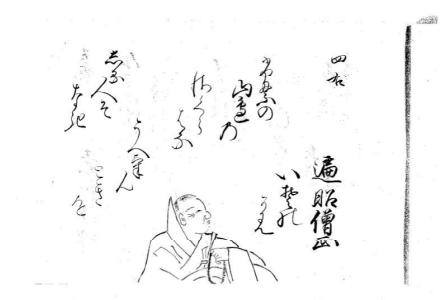 四右
遍昭僧正
いその
かみ
ふるの
山邊乃
さくら
はな
うへけん
とき
を
しる人そ
なき